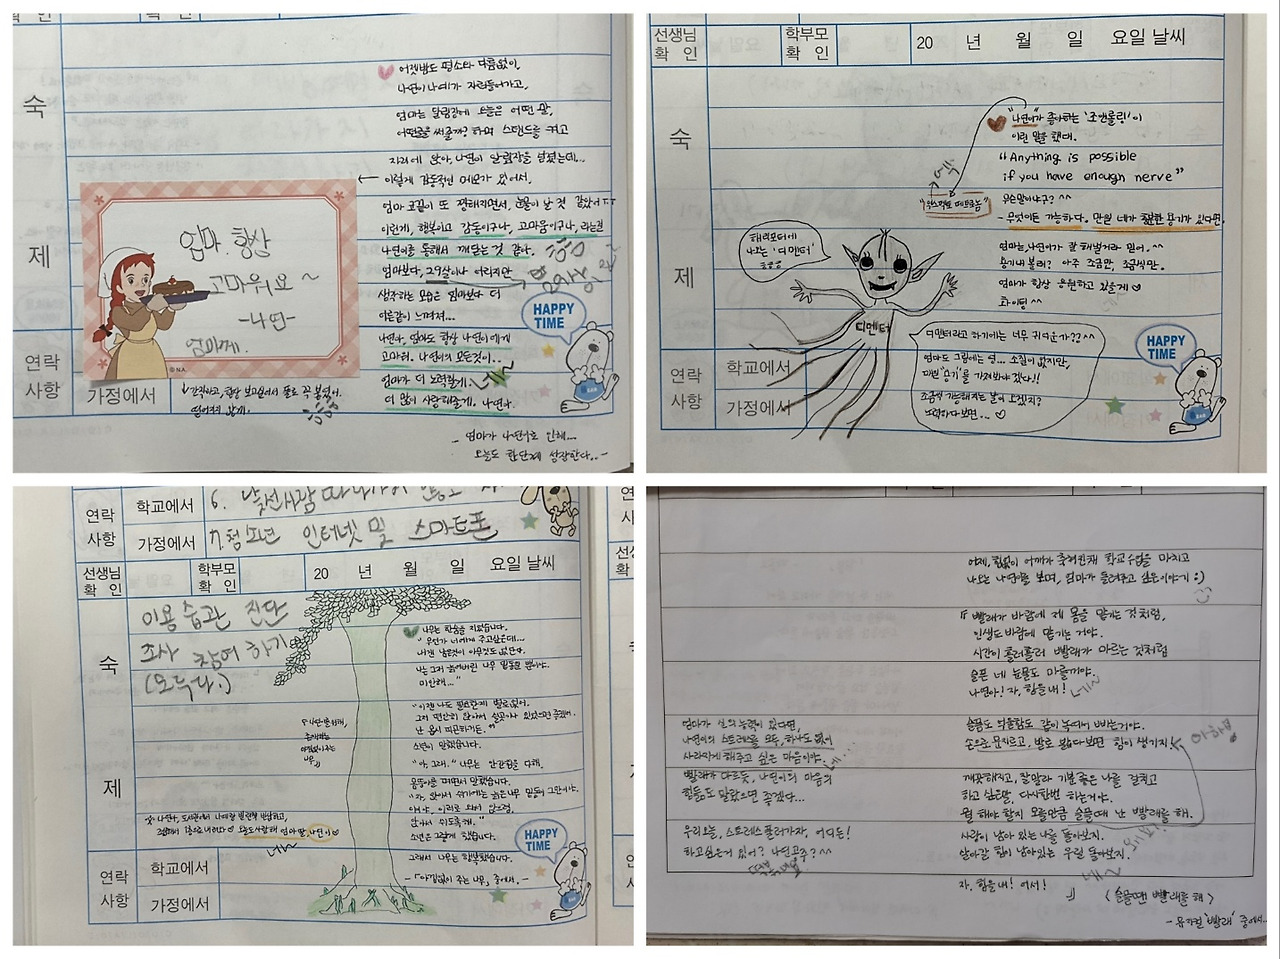 숙
제
연락
사항
가정에서
어젯밤도 평소와 다름없이,
나연이 나예가 자러들어가고,
엄마는 알림장에 오늘은 어떤 말,
어떤글을 써줄까? 하며 스탠드를 켜고
자리에 앉아, 나연이 알림장을 펼쳤는데...
이렇게 감동적인 메모가 있어서,
엄마 코끝이 또 찡해지면서, 눈물이 날 것 같았어ㅜㅜ
이런게, 행복이고 감동이구나, 고마움이구나, 라는걸
나연이를 통해서 깨닫는 것 같아.
엄마보다, 어리지만
생각하는 모습은 엄마보다 더
어른같이 느껴져...
나연아, 엄마도 항상 나연이에게
고마워. 나연이의 모든것이..
엄마가 더 노력할게
더 많이 사랑해줄게, 나연아.
엄마, 항상
고마워요~
-나연-
엄마께.
© N.A.
간직하고, 항상 보고싶어서 풀로 꼭 붙였어.
떨어지지 않게.
HAPPY
TIME
- 엄마가 나연이로 인해...
오늘도 한단계 성장한다..-
선생님
확 인
학부모
확 인
20 년 월 일 요일 날씨
숙
제
연락
사항
학교에서
가정에서
"나연이가 좋아하는 '조앤롤링'이
이런 말을 했대.
"Anything is possible
if you have enough nerve"
무슨말이냐구? ^^
- 무엇이든 가능하다. 만일 네가 용기가 있다면.
엄마는, 나연이가 잘 해낼거라 믿어. ^^
용기내 볼래? 아주 조금만, 조금씩만.
엄마가 항상 응원하고 있을게♡
화이팅^^
해리포터에
나오는 '디멘터'
디멘터
디멘터라고 하기에는 너무 귀여운가?? ^^
엄마도 그림에는 영... 소질이 없지만,
"용기"를 가져봐야겠다!!
조금씩 가능해지는 날이 오겠지?
노력하다보면... ♡
HAPPY
TIME
연락
사항
학교에서
가정에서
7. 청소년 인터넷 및 스마트폰
선생님
확 인
학부모
확 인
20 년 월 일 요일 날씨
이용 습관 진단
조사 참여 하기
숙
제
연락
사항
학교에서
가정에서
나무는 한숨을 지었습니다.
"무언가 너에게 주고싶은데...
내겐 남은것이 아무것도 없단다.
나는 그저 늙어버린 나무 밑동일 뿐이야.
미안해..."
"이젠 나도 필요한게 별로 없어.
그저 편안히 앉아서 쉴곳이나 있었으면 좋겠어.
난 몹시 피곤하거든."
소년이 말했습니다.
"아, 그래." 나무는 안간힘을 다해,
몸뚱이를 펴면서 말했습니다.
"자, 앉아서 쉬기에는 늙은나무 밑동이 그만이야.
얘야, 이리로 와서 앉으렴.
앉아서 쉬도록해."
소년은 그렇게 했습니다.
그래서 나무는 행복했습니다.
-「아낌없이 주는 나무」 중에서.-
네~
HAPPY
TIME
어제, 힘없이 어깨가 축쳐진채 학교수업을 마치고
나오는 나연이를 보며, 엄마가 들려주고 싶은이야기 :)
『빨래가 바람에 제 몸을 맡기는 것처럼,
인생도 바람에 맡기는 거야.
시간이 흘러흘러 빨래가 마르는 것처럼
슬픈 네 눈물도 마를꺼야.
나연아! 자, 힘을내!
네~
슬픔도 억울함도 같이 녹여서 빠는거야.
손으로 문지르고, 발로 밟다보면 힘이 생기지.
깨끗해지고, 잘말라 기분좋은 나를 걸치고
하고 싶은말, 다시한번 하는거야.
뭘 해야 할지 모를만큼 슬플때 난 빨래를 해.
사랑이 남아 있는 나를 돌아보지.
살아갈 힘이 남아있는 우릴 돌아보지.
자, 힘을내! 어서!』
<슬플땐 빨래를 해>
- 뮤지컬 '빨래' 중에서..
엄마가 신의능력이 있다면,
나연이의 스트레스를 모두, 하나도 없이
사라지게 해주고 싶은 마음이야.
빨래가 마르듯, 나연이의 마음의
힘듦도 말랐으면 좋겠다...
우리 오늘, 스트레스 풀러가자, 어디든!
하고싶은거 있어? 나연공주? ^^